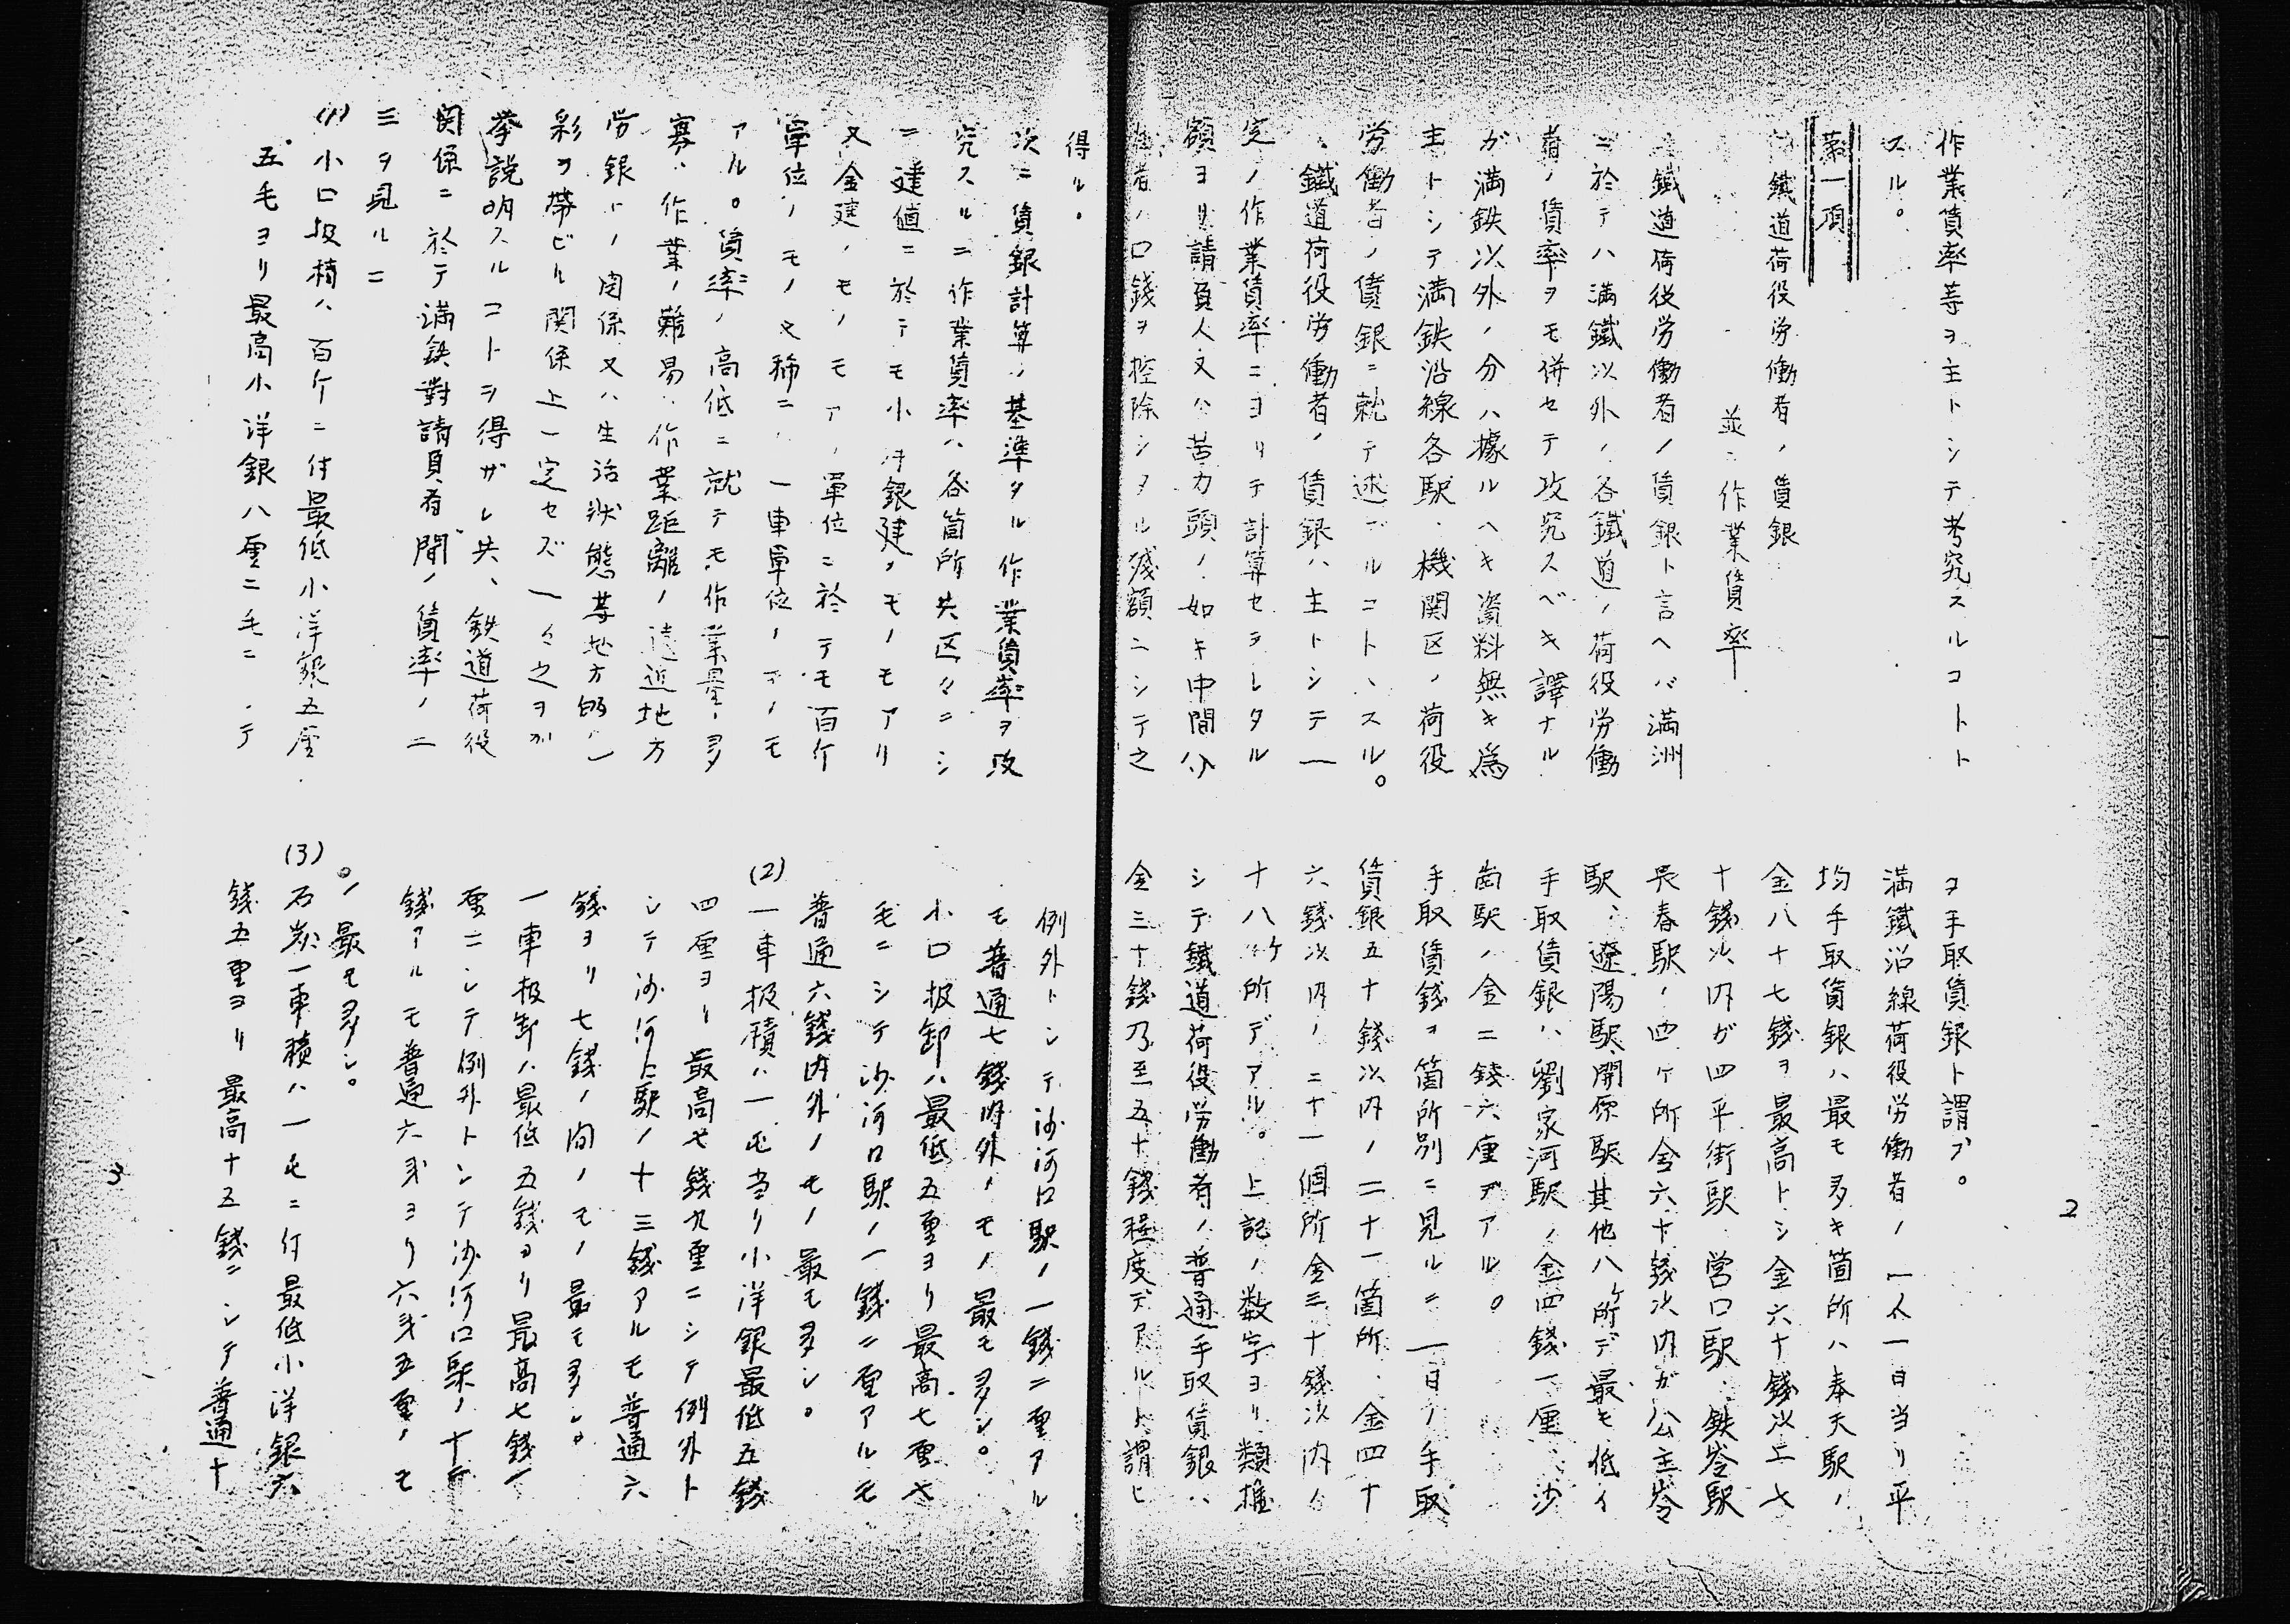 作業賃率等ヲ主トシテ考究スルコトト
スル。
第一項
鐵道荷役労働者ノ賃銀
並ニ作業賃率
鐵道荷役労働者ノ賃銀ト言ヘバ満洲
ニ於テハ満鐵以外ノ各鐵道ノ荷役労働
者ノ賃率ヲモ併セテ攻究スベキ譯ナル
ガ満鉄以外ノ分ハ據ルヘキ資料無キ為
主トシテ満鉄沿線各駅、機関区ノ荷役
労働者ノ賃銀ニ就テ述ブルコトヽスル。
鐵道荷役労働者ノ賃銀ハ主トシテ一
定ノ作業賃率ニヨリテ計算セラレタル
額ヨリ請負人又ハ苦力頭ノ如キ中間介
在者ノ口錢ヲ控除シタル残額ニシテ之
ヲ手取賃銀ト謂フ。
満鐵沿線荷役労働者ノ一人一日当リ平
均手取賃銀ハ最モ多キ箇所ハ奉天駅ノ
金八十七錢ヲ最高トシ金六十錢以上七
十錢以内ガ四平街駅、営口駅、鉄嶺駅
長春駅ノ四ケ所金六十錢以内ガ公主嶺
駅、遼陽駅、開原駅其他八ケ所デ最モ低イ
手取賃銀ハ劉家河駅ノ金四錢一厘、沙
崗駅ノ金二錢六厘デアル。
手取賃錢ヲ箇所別ニ見ルニ一日ノ手取
賃銀五十錢以内ノ二十一箇所、金四十
六錢以内ノ二十一個所金三十錢以内ノ
十八ケ所デアル。上記ノ数字ヨリ類推
シテ鐵道荷役労働者ノ普通手取賃銀ハ
金三十錢乃至五十錢程度デアルト謂ヒ
2
得ル。
次ニ賃銀計算ノ基準タル作業賃率ヲ攻
究スルニ作業賃率ハ各箇所共区々ニシ
ニ建値ニ於テモ小洋銀建ノモノモアリ
又金建ノモノモアリ単位ニ於テモ百斤
単位ノモノ又稀ニハ一車単位ノモノモ
アル。賃率ノ高低ニ就テモ作業量ノ多
寡、作業ノ難易、作業距離ノ遠近地方
労銀トノ関係又ハ生活状態等地方的ノ
彩ヲ帯ビル関係上一定セズ一々之ヲ列
挙説明スルコトヲ得ザレ共、鉄道荷役
関係ニ於テ満鉄對請負者間ノ賃率ノ二
三ヲ見ルニ
(1)小口扱積ハ百斤ニ付最低小洋銀五厘
五毛ヨリ最高小洋銀八厘二毛ニシテ
例外トシテ沙河口駅ノ一錢二厘アル
モ普通七錢内外ノモノ最モ多シ。
小口扱卸ハ最低五厘ヨリ最高七厘七
毛ニシテ沙河口駅ノ一錢二厘アルモ
普通六錢内外ノモノ最モ多シ。
(2)一車扱積ハ一屯当リ小洋銀最低五錢
四厘ヨリ最高七錢九厘ニシテ例外ト
シテ沙河口駅ノ十三錢アルモ普通六
錢ヨリ七錢ノ間ノモノ最モ多シ。
一車扱卸ハ最低五錢ヨリ最高七錢一
厘ニシテ例外トシテ沙河口駅ノ十二
錢アルモ普通六錢ヨリ六錢五厘ノモ
ノ最モ多シ。
(3)石炭一車積ハ一屯ニ付最低小洋銀六
錢五厘ヨリ最高十五錢ニシテ普通十
3